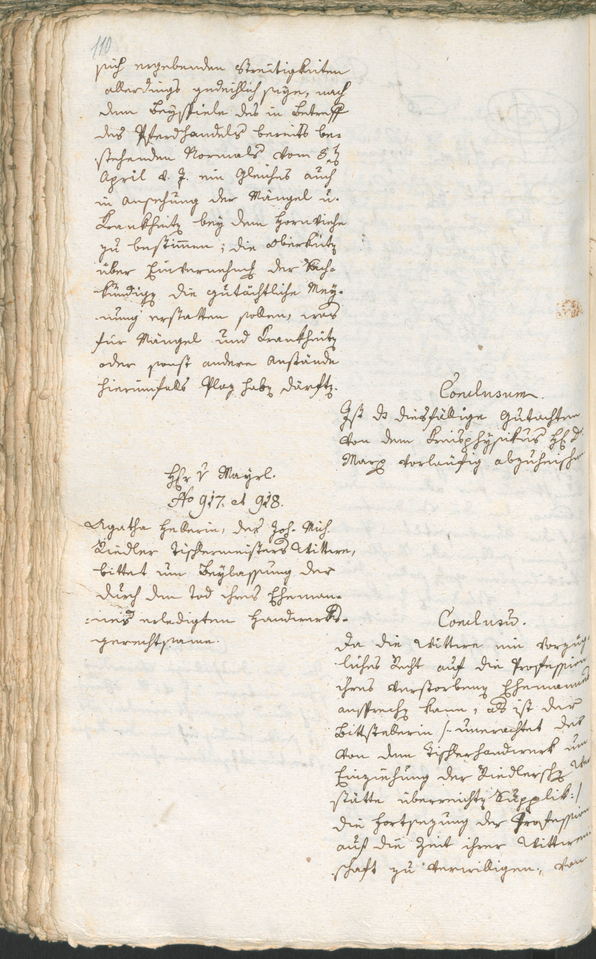 110
sich ergebenden Streitigkeiten
allerdings gedeihlich seye, nach
dem Beyspiele des in Betreff
des Pferdhandels bereits be-
stehenden Normals vom
April d. J. ein Gleiches auch
in Ansehung der Mängel u.
Krankheitn bey dem Hornviehe
zu bestimmen; die
über Einvernehmen der Sach-
kündign die gutächtliche Mey-
nung erstatten sollen, was
für Mängel und Krankheitn
oder sonst andere Anstände
hierinnfalls Plaz habn dürftn.
Conclusum.
Ist dß diesfällige Gutachten
von dem Kreisphysikus H:
Marx vorläufig
Hr v Mayrl.
No 917. et 918.
Agatha Hellerin, des Joh. Mich.
Riedler Tischermeisters Wittwe,
bittet um Beylassung der
durch den Tod ihres Eheman-
nes erledigten Handwerks-
gerechtsame.
Conclusum.
Da die Wittwe ein vorzüg-
liches Recht auf die Profession
ihres verstorbenen Ehemannes
ansprechn kann, so ist der
Bittstellerin /: unerachtet der
von dem Tischerhandwerk um
Einziehung der Riedlerschn
stätte überreichtn Supplik :/
die Fortsezung der Profession
auf die Zeit ihrer Wittwen-
schaft zu verwilligen, von